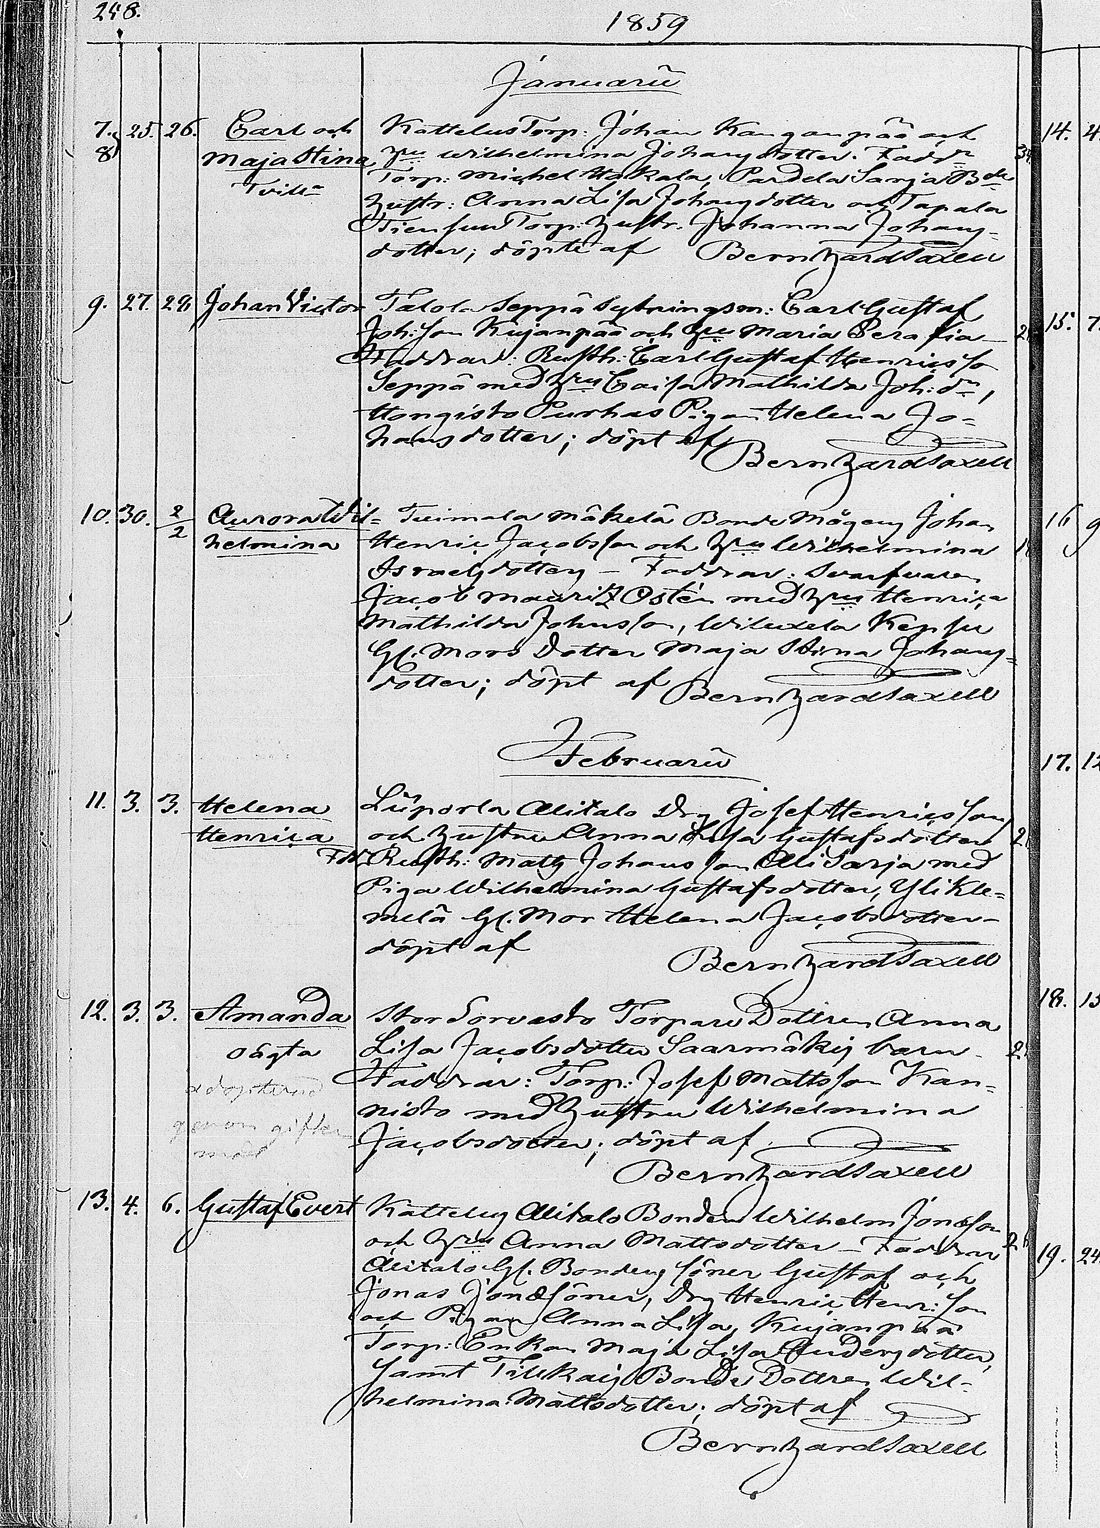 248.
1859
Januarii
7. 25. 26. Carl och Kattelus Torp: Johan Kanganpää och
8. Maja Stina Hru Wilhelmina Johansdotter. Faddr
Tvill: Torp: Michel Hakala, Pardela Sarja Bde
Hustr: Anna Lisa Johansdotter och Tapala
Torp: Hustr. Johanna Johans-
dotter; döpte af Bernhard Saxell
9. 27. 28. Johan Victor Talola Seppä Sytningsm: Carl Gustaf
Joh:son Kujanpää och Hru Maria Serafia
Faddrar: Rusth: Carl Gustaf Henricsso
Seppä med Hru Caisa Mathilda Joh:dr,
Hongisto Purhas Pigan Helena Jo-
hansdotter; döpt af Bernhard Saxell
10. 30. 2/2 Aurora Wil- Tuimala Mäkelä Bonde Mågens Johan
helmina Henric Jacobsson och Hru Wilhelmina
Israelsdotters – Faddrar: Svarfvaren
Jacob Mauritz Östén med Hru Henrica
Mathilda Johnsson, Wiluxela Keppu
Gl. Mors Dotter Maja Stina Johans-
dotter; döpt af Bernhard Saxell
Februarii
11. 3. 3. Helena Liiporla Alitalo Drg Josef Henricsson
Henrica och Hustru Anna Lisa Gustafsdotter
Fdr. Rusth: Matts Johansson Ali Sarja med
Piga Wilhelmina Gustafsdotter, Ylikle-
melä Gl. Mor Helena Jacobsdotter
döpt af Bernhard Saxell
12. 3. 3. Amanda Stor Sorvasto Torpare Dottren Anna
oägta Lisa Jacobsdotter Saarmäkis barn
adopterad Faddrar: Torp: Josef Mattsson Kan-
genom gifter nisto med Hustru Wilhelmina
mål Jacobsdotter; döpt af
Bernhard Saxell
13. 4. 6. Gustaf Evert Kattelus Alitalo Bonden Wilhelm Jonasson
och Hru Anna Mattsdotter – Faddrar
Alitalo Gl. Bondens Söner Gustaf och
Jonas Jonæsöner, Drg Henric Henr:son
och Pigan Anna Lisa, Kujanpää
Torp: Enkan Maja Lisa Andersdotter,
samt Tilkais Bonde Dottren Wil-
helmina Mattsdotter; döpt af
Bernhard Saxell
14. 4.
15. 7.
16 9
17. 12
18. 15
19. 24